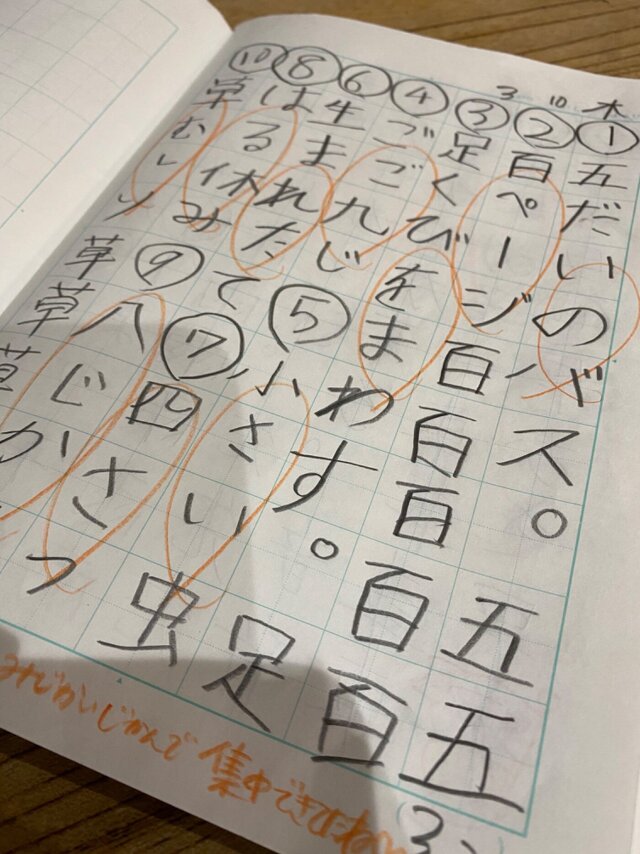 3 10 木
①五だいのバス。五五
②百ページ百百百百百
③足くびをまわす。足
④ごご九じ⑤小さい虫
⑥生まれたて⑦四さつ
⑧はる休み⑨八じか
⑩草むしり草草草
みじかいじかんで集中できたね